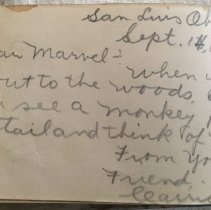 San Luis Ob
Sept. 14,
ar Marvel:- When
out to the woods
see a monkey
tail and think of
From Yo
Friend